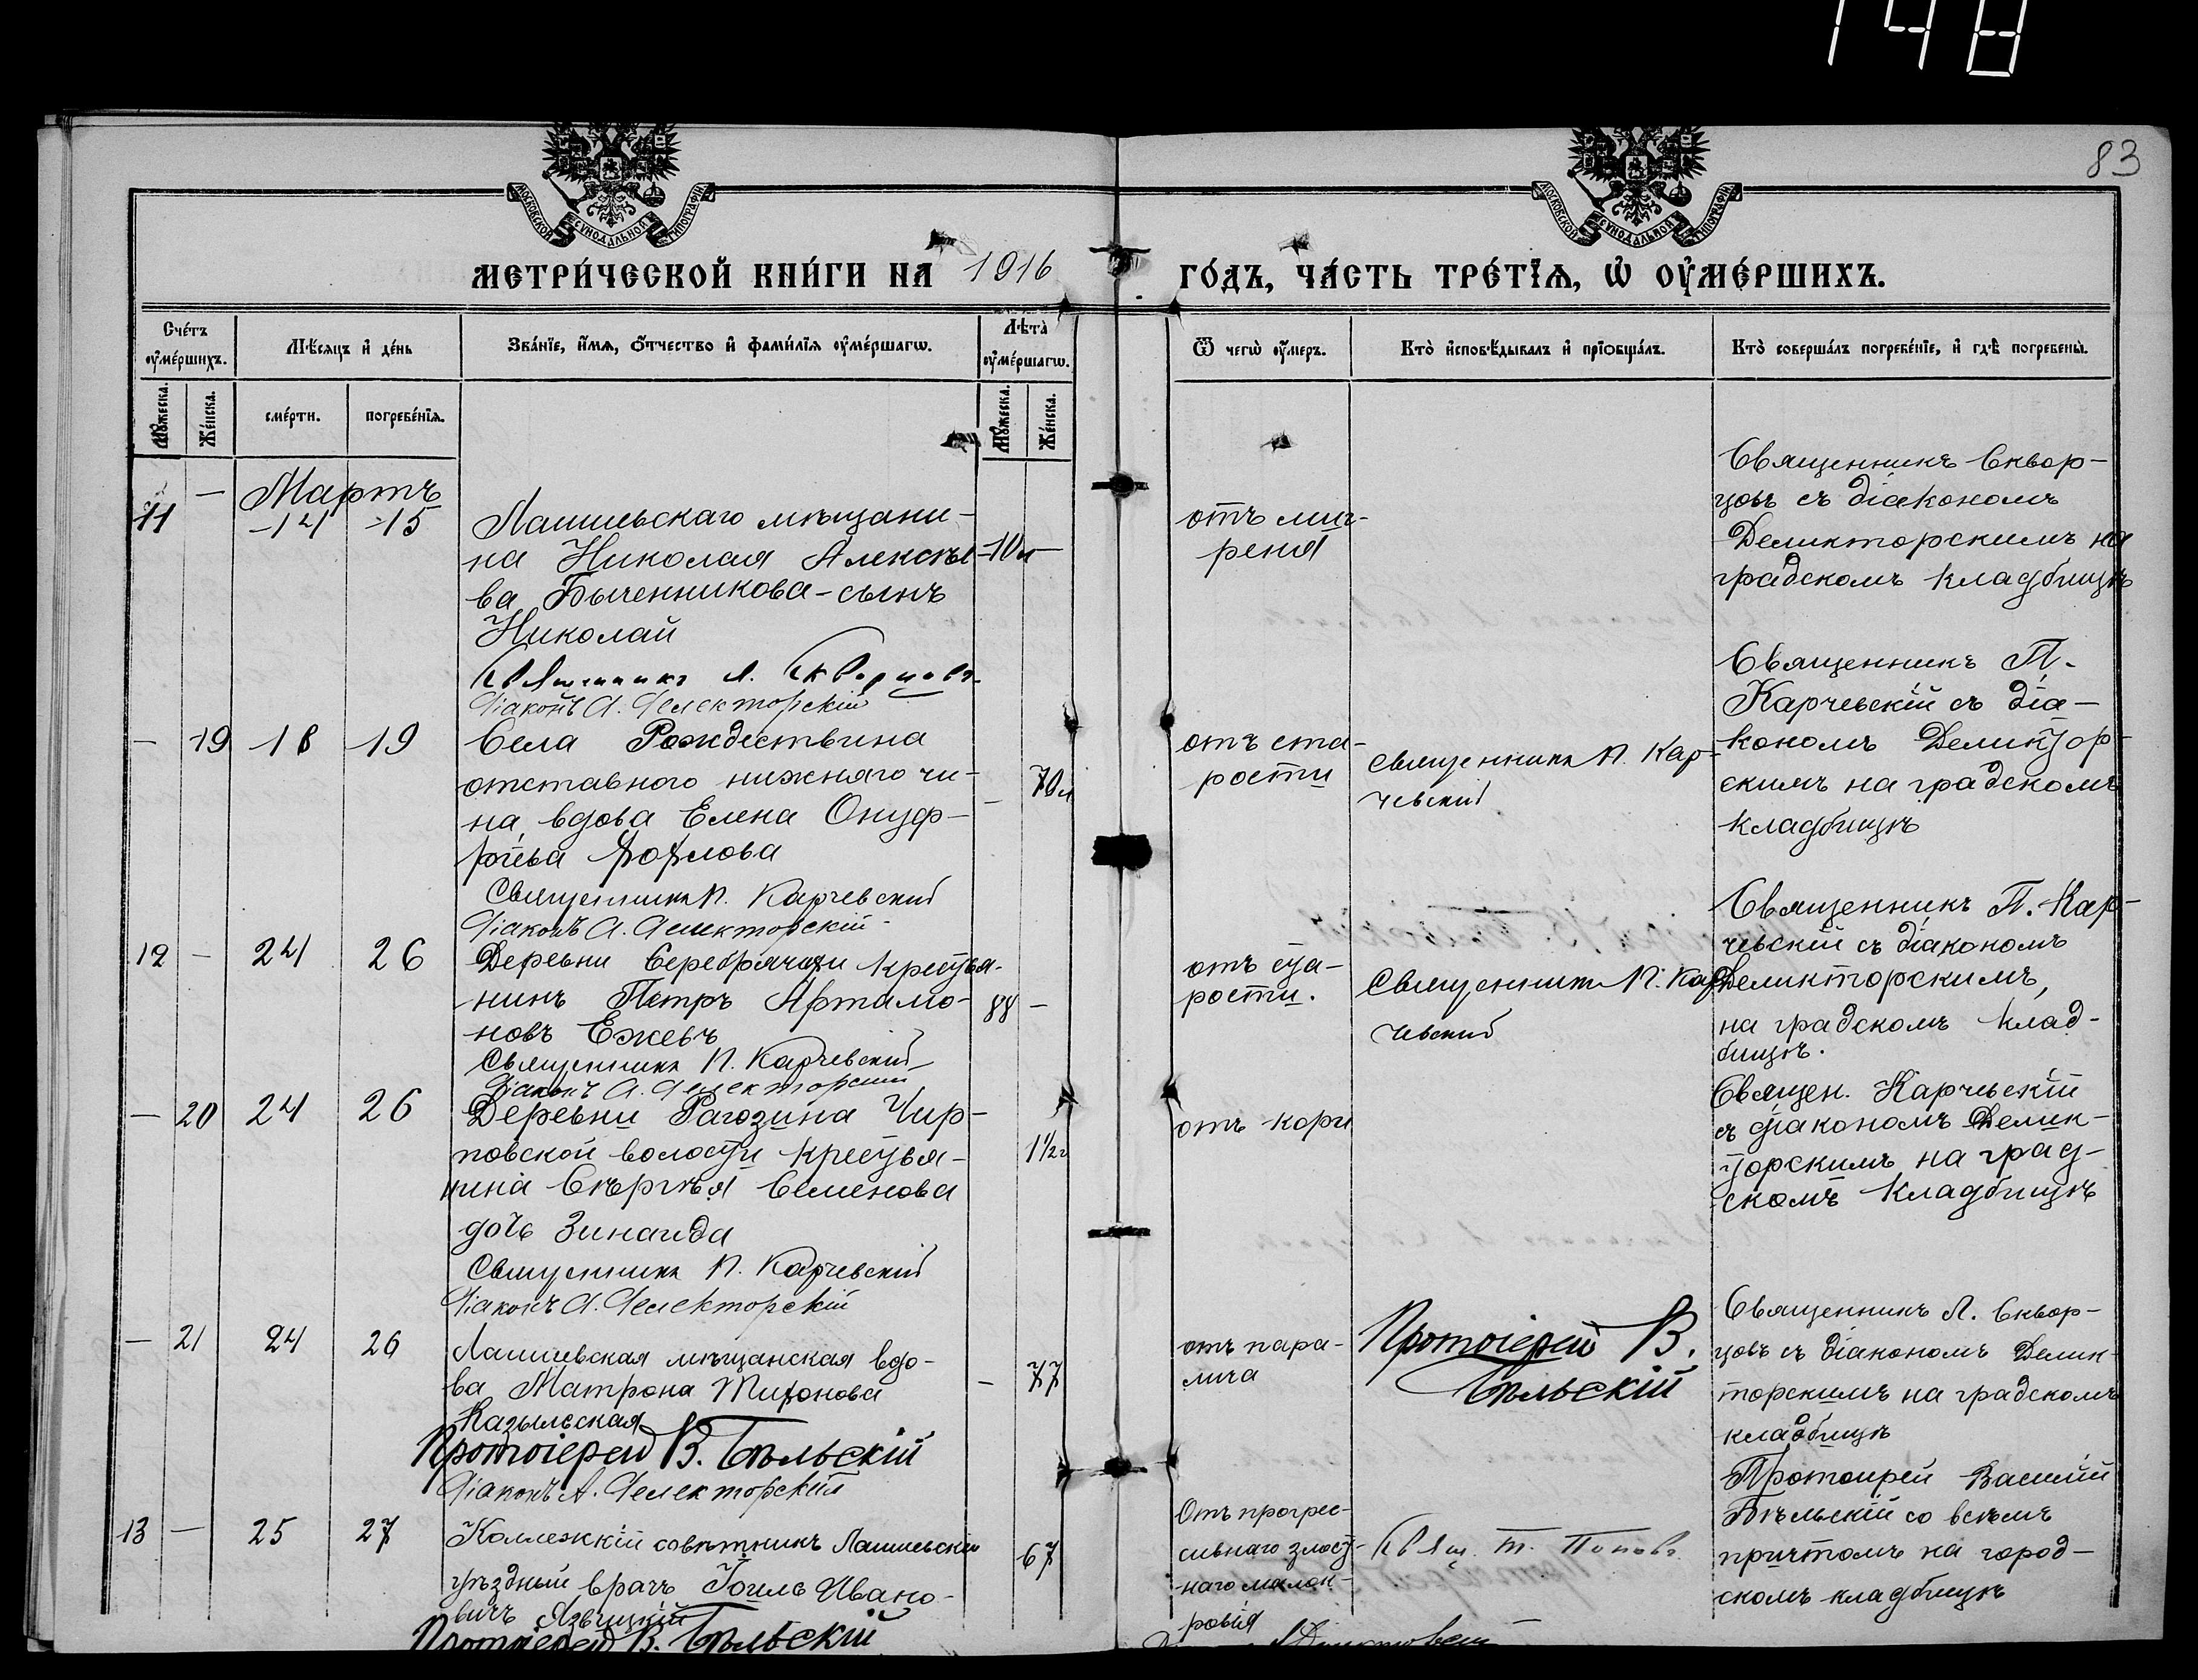 148
83
МОСКОВСКОЙ СѴНОДАЛЬНОЙ ТИПОГРАФІИ
МОСКОВСКОЙ СѴНОДАЛЬНОЙ ТИПОГРАФІИ
МЕТРИ́ЧЕСКОЙ КНИ́ГИ НА 1916 ГО́ДЪ, ЧА́СТЬ ТРЕ́ТІѦ, Ѡ ОУМЕ́РШИХЪ.
Сче́тъ оуме́ршихъ.
Мѣ́сяцъ и де́нь
Зва́нїе, и́мѧ, о́тчество и фами́лїѧ оуме́ршагѡ.
Лѣта̀ оуме́ршагѡ.
Ѿ чегѡ̀ оу́меръ.
Кто̀ исповѣ́дывалъ и прїобща́лъ.
Кто̀ соверша́лъ погребе́нїе, и гдѣ̀ погребены̀.
Мужеска.
Же́нска.
сме́рти.
погребе́нїѧ.
Мужеска.
Же́нска.
Мартъ
11 — 14 15
Лаишевскаго мѣщани-
на Николая Алексѣе-
ва Быченникова - сынъ
Николай
Священникъ Л. Скворцовъ.
Діаконъ А. Делекторскій
10 м
отъ миг-
реня
Священникъ Сквор-
цовъ съ діакономъ
Деликторскимъ на
градскомъ кладбищѣ
— 19 18 19
Села Рождествина
отставного нижняго чи-
на вдова Елена Онуф-
ріева
Священникъ П. Карчевскій
Діаконъ А. Делекторскій
— 70 л
отъ ста-
рости
Священникъ П. Кар-
чевскій
Священникъ П.
Карчевскій съ діа-
кономъ Деликтор-
скимъ на градскомъ
кладбищѣ
12 — 24 26
Деревни Серебрячихи крестья-
нинъ Петръ Артамо-
новъ Ежевъ
Священникъ П. Карчевскій
Діаконъ А. Делекторскій
88 —
отъ ста-
рости.
Священникъ П. Кар-
чевскій
Священникъ П. Кар-
чевскій съ діакономъ
Деликторскимъ,
на градскомъ клад-
бищѣ.
— 20 24 26
Деревни Рагозина Чир-
повской волости крестья-
нина Сѣргѣя Семенова
дочь Зинаида
Священникъ П. Карчевскій
Діаконъ А. Делекторскій
1½ г
отъ кори
Священ. Карчевскій
съ діакономъ Делик-
торскимъ на град-
скомъ кладбищѣ
— 21 24 26
Лаишевская мѣщанская вдо-
ва Матрона Тихонова
Казыльская
Протоіерей В. Бѣльскій
Діаконъ А. Делекторскій
— 77
отъ пара-
лича
Протоіерей В.
Бѣльскій
Священникъ Л. Сквор-
цовъ съ діакономъ Делик-
торскимъ на градскомъ
кладбищѣ
13 — 25 27
Коллежскій совѣтникъ Лаишевскій
уѣздный врачъ Іоиль Ивано-
вичъ Явицкій
Протоіерей В. Бѣльскій
67
Отъ прогрес-
сивнаго злост-
наго малок-
ровія
Свящ. Т. Поповъ.
Протоирей Василій
Бѣльскій со всѣмъ
причтомъ на город-
скомъ кладбищѣ